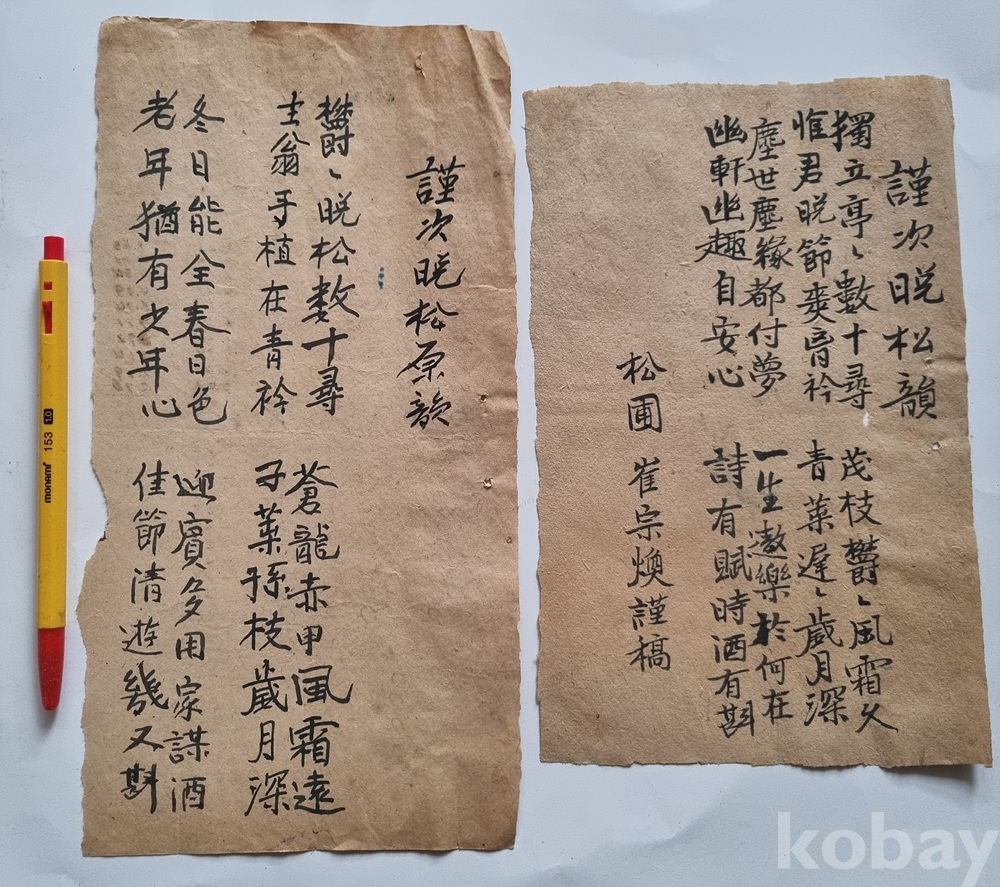 謹次晩松韻
獨立亭〻數十尋
惟君晩節爽胷衿
茂枝欝〻風霜久
青葉遲〻歲月深
塵世塵緣都付夢
幽軒幽趣自安心
一生遨樂於何在
詩有賦時酒有斟
松圃 崔宗煥謹稿
謹次晩松原韻
欝〻晩松数十尋
主翁手植在青衿
蒼龍赤甲風霜遠
子葉孫枝歲月深
冬日能全春日色
老年猶有少年心
迎賓多用家謀酒
佳節清遊幾又斟
monami 153 1.0
kobay